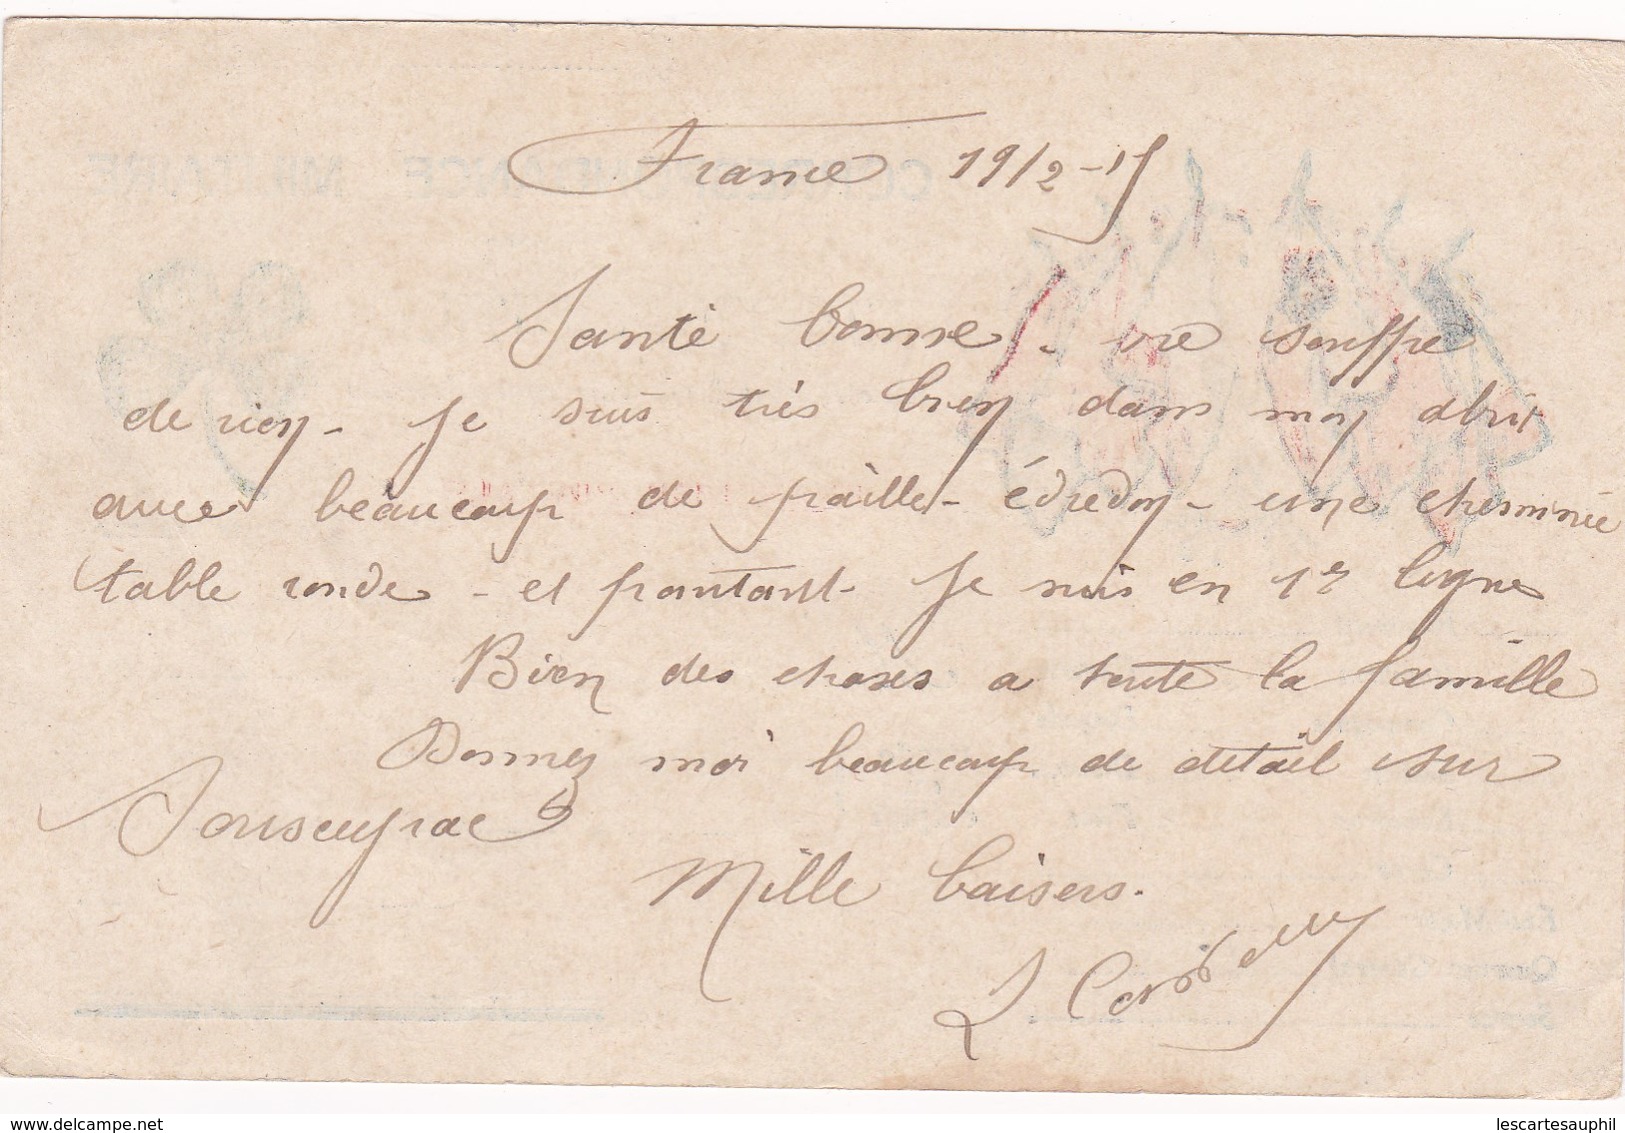 France 19/2-15
Santé bonne - ne souffre
de rien - Je suis très bien dans mon abrit
avec beaucoup de paille - édredon - une cheminée
table ronde - et pourtant - Je suis en 1r ligne
Bien des choses a toute la famille
Donnez moi beaucoup de detail sur
Souseyrac
Mille baisers.
lescartesauphil